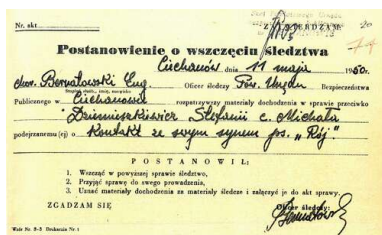 Nr. akt
ZATWIERDZAM:
20
Postanowienie o wszczęciu śledztwa
Ciechanów dnia 11 maja 1950r.
chor. Bernatowski Eug. Oficer śledczy Pow. Urzędu Bezpieczeństwa
Stopień służb., imię, nazwisko
Publicznego w Ciechanowie rozpatrzywszy materiały dochodzenia w sprawie przeciwko
Dziemiszkiewicz Stefanii c. Michała
podejrzanemu (ej) o kontakt ze swym synem ps. „Rój"
POSTANOWIŁ:
1. Wszcząć w powyższej sprawie śledztwo,
2. Przyjąć sprawę do swego prowadzenia,
3. Uznać materiały dochodzenia za materiały śledcze i załączyć je do akt sprawy.
ZGADZAM SIĘ
Oficer śledczy: